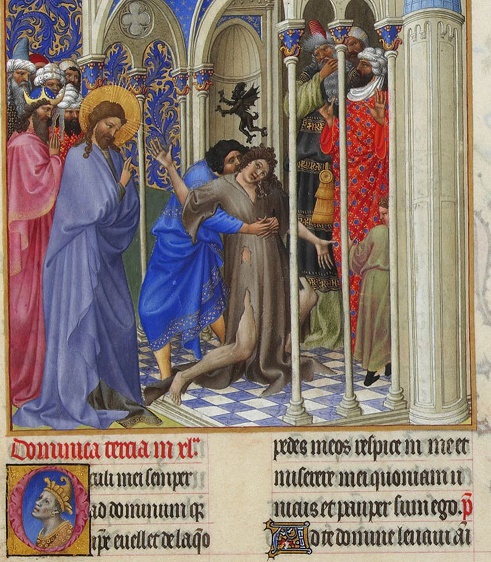 Dominica tercia in xl.ª
Oculi mei semper
ad dominum qꝛ
ip̄e euellet de laq̄o
pedes meos respice in me et
miserere mei quoniam u
nicus et pauper sum ego. p̄
Ad te domine leuaui ani